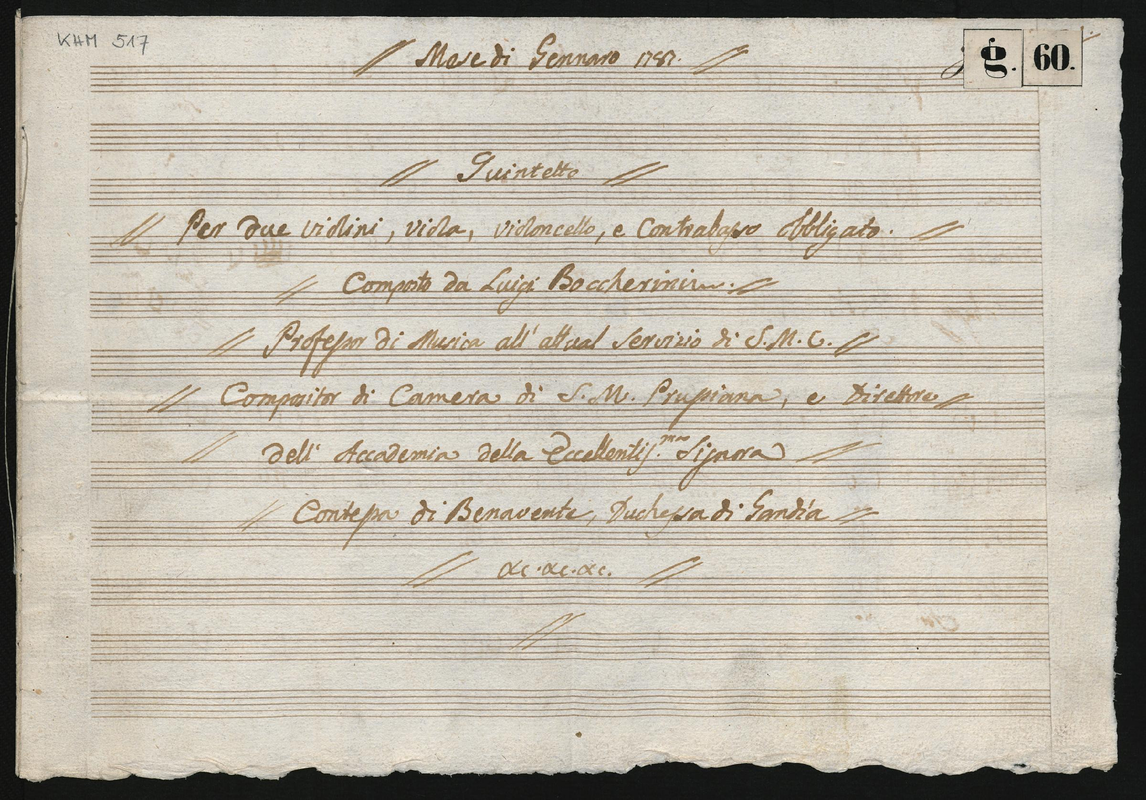 KHM 517
Mese di Gennaro 1787.
g. 60.
Quintetto
Per due violini, viola, violoncello, e Contrabasso obbligato.
Composto da Luigi Boccherini.
Professor di Musica all' attual servizio di S. M. C.
Compositor di Camera di S. M. Prussiana, e Direttore
dell' Accademia della Eccellentis.ma Signora
Contessa di Benavente, Duchessa di Gandìa
&c. &c. &c.